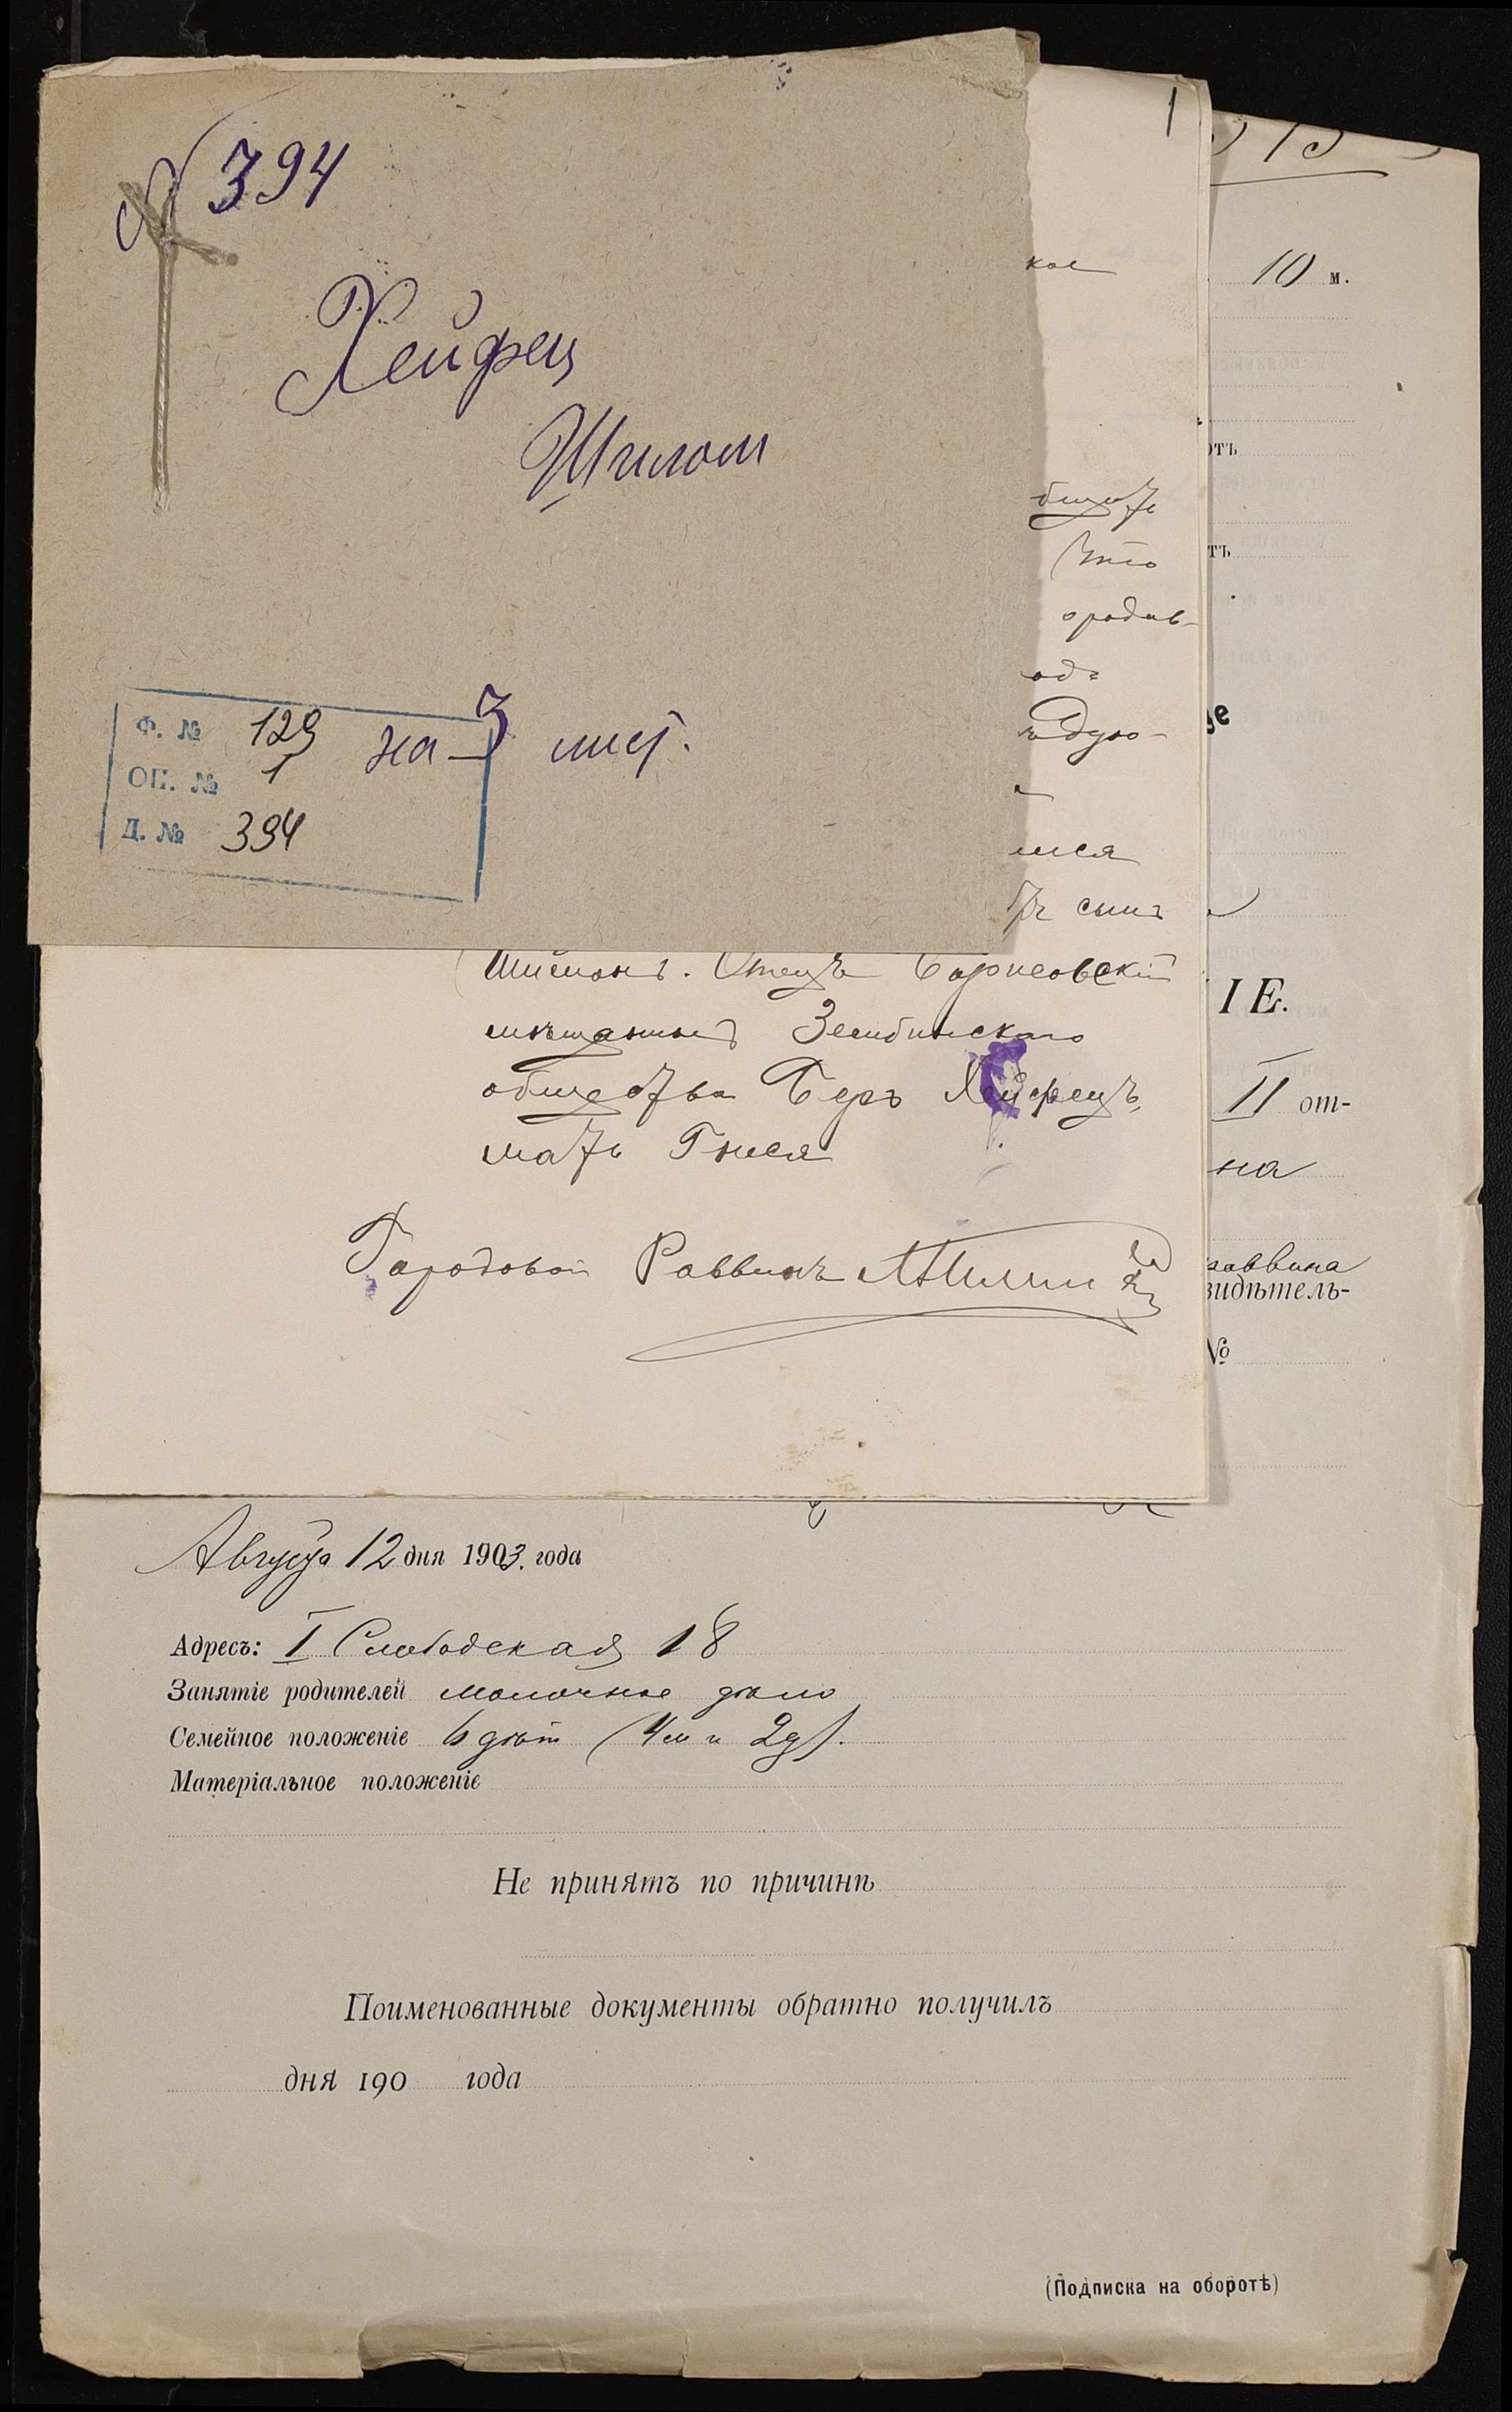 № 394
Хейфец
Шилом
Ф. № 129
ОП. № 1
Д. № 394
на 3 лист.
1
кое
что
одъ
шся
сынъ
Шиломъ. Отецъ Борисовскій
мѣщанинъ Зембинскаго
общества Беръ Хейфецъ,
мать Гнеся
Городовой Раввинъ
10 м.
отъ
тъ
IE.
II от-
на
раввина
видѣтель-
№
Августа 12 дня 1903. года
Адресъ: I Слободская 18
Занятіе родителей молочное дѣло
Семейное положеніе 6 дѣт (4 м и 2 д).
Матеріальное положеніе
Не принятъ по причинѣ
Поименованные документы обратно получилъ
дня 190 года
(Подписка на оборотѣ)